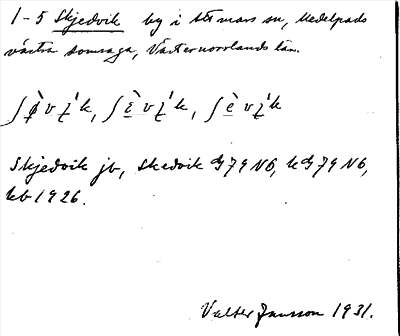 1-5 Skjedvik by i Stt mars sn, Medelpads
västra domsaga, Västernorrlands län.
Skjedvik jb, Skedvik G79 N6, kG79 N6,
kb 1926.
Valter Jansson 1931.